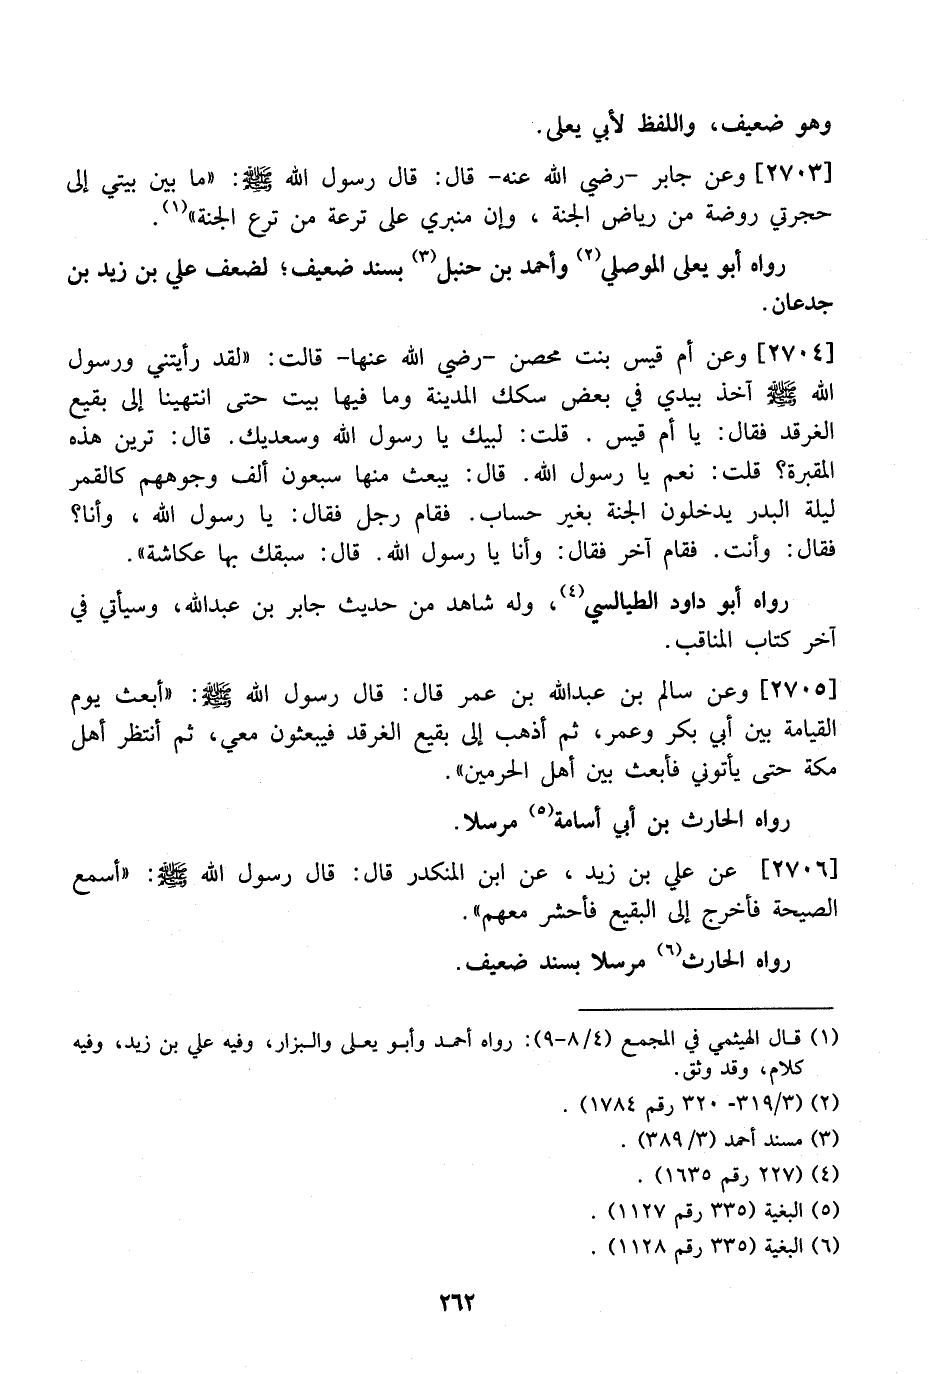 وهو ضعيف، واللفظ لأبي يعلى.
[٢٧٠٣] وعن جابر -رضي الله عنه- قال: قال رسول الله ﷺ: «ما بين بيتي إلى
حجرتي روضة من رياض الجنة ، وإن منبري على ترعة من ترع الجنة»(١).
رواه أبو يعلى الموصلي(٢) وأحمد بن حنبل(٣) بسند ضعيف؛ لضعف علي بن زيد بن
جدعان.
[٢٧٠٤] وعن أم قيس بنت محصن -رضي الله عنها- قالت: «لقد رأيتني ورسول
الله ﷺ آخذ بيدي في بعض سكك المدينة وما فيها بيت حتى انتهينا إلى بقيع
الغرقد فقال: يا أم قيس . قلت: لبيك يا رسول الله وسعديك. قال: ترين هذه
المقبرة؟ قلت: نعم يا رسول الله. قال: يبعث منها سبعون ألف وجوههم كالقمر
ليلة البدر يدخلون الجنة بغير حساب. فقام رجل فقال: يا رسول الله ، وأنا؟
فقال: وأنت. فقام آخر فقال: وأنا يا رسول الله. قال: سبقك بها عكاشة».
رواه أبو داود الطيالسي(٤)، وله شاهد من حديث جابر بن عبدالله، وسيأتي في
آخر كتاب المناقب.
[٢٧٠٥] وعن سالم بن عبدالله بن عمر قال: قال رسول الله ﷺ: «أبعث يوم
القيامة بين أبي بكر وعمر، ثم أذهب إلى بقيع الغرقد فيبعثون معي، ثم أنتظر أهل
مكة حتى يأتوني فأبعث بين أهل الحرمين».
رواه الحارث بن أبي أسامة(٥) مرسلا.
[٢٧٠٦] عن علي بن زيد ، عن ابن المنكدر قال: قال رسول الله ﷺ: «أسمع
الصيحة فأخرج إلى البقيع فأحشر معهم».
رواه الحارث(٦) مرسلا بسند ضعيف.
(١) قال الهيثمي في المجمع (٤/ ٨-٩): رواه أحمد وأبو يعلى والبزار، وفيه علي بن زيد، وفيه
كلام، وقد وثق.
(٢) (٣/ ٣١٩- ٣٢٠ رقم ١٧٨٤) .
(٣) مسند أحمد (٣/ ٣٨٩) .
(٤) (٢٢٧ رقم ١٦٣٥) .
(٥) البغية (٣٣٥ رقم ١١٢٧) .
(٦) البغية (٣٣٥ رقم ١١٢٨) .
٢٦٢